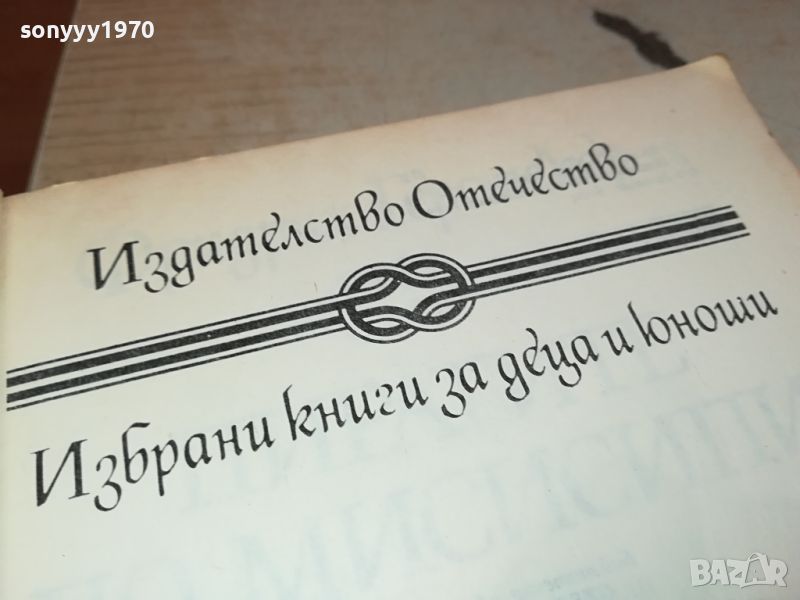 sonyyy1970
Издателство Отечество
Избрани книги за деца и юноши
BAZAR